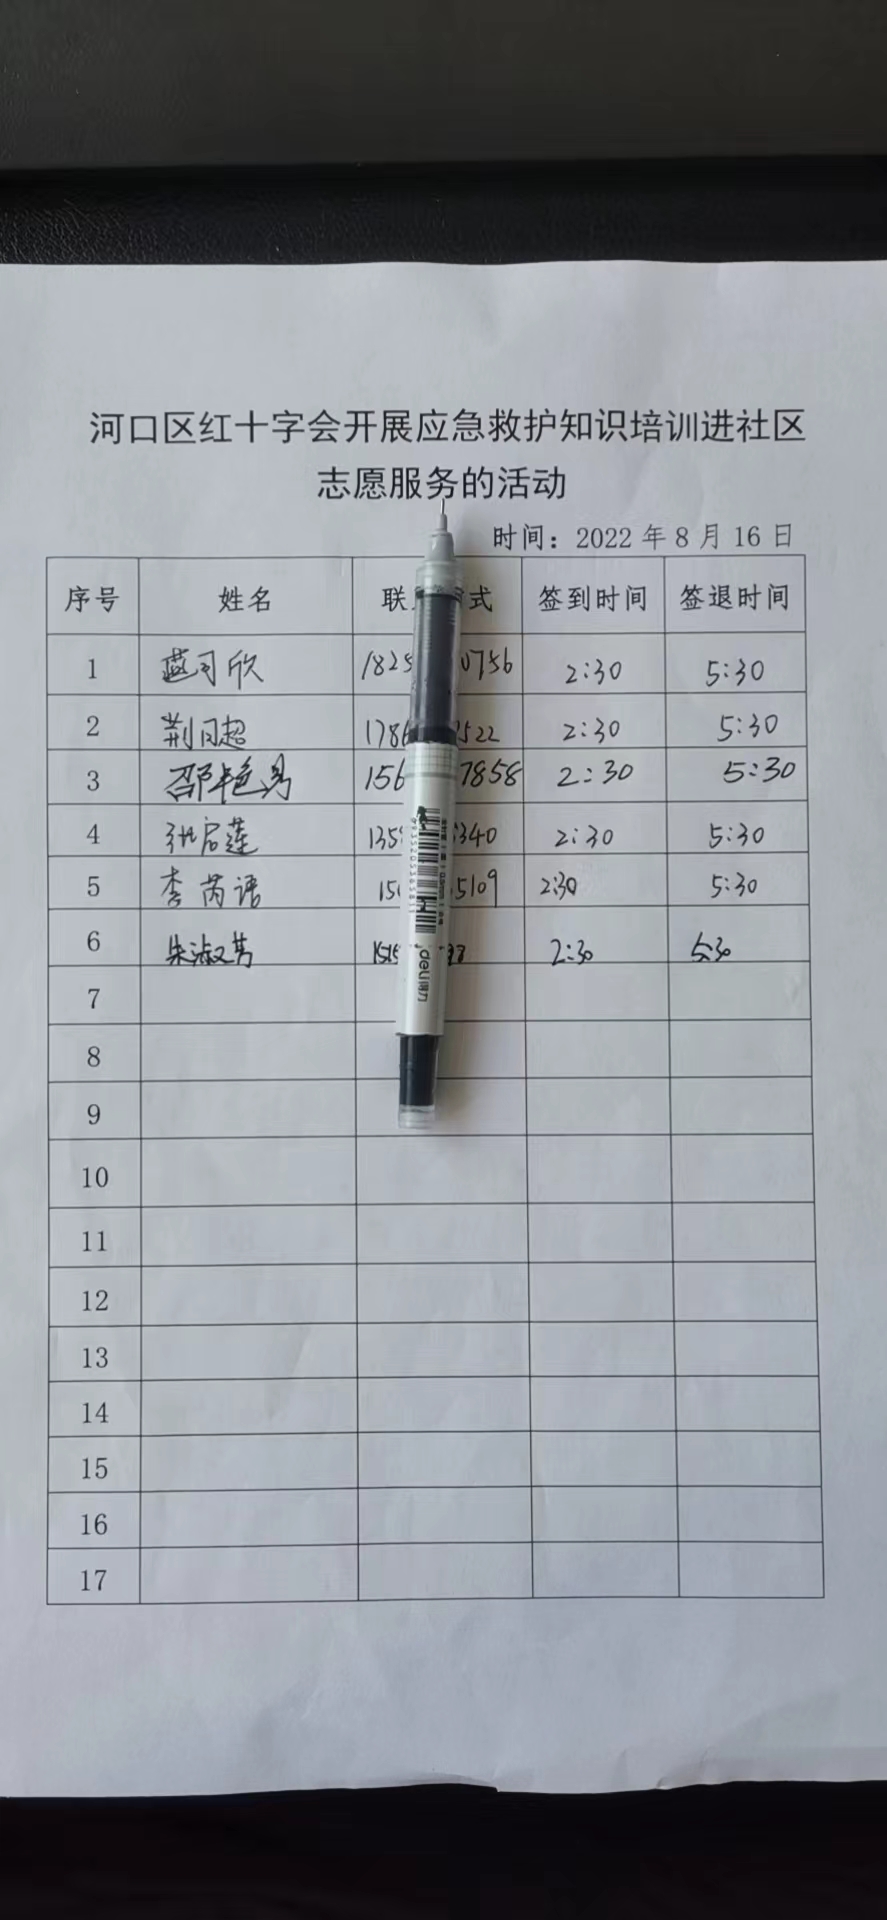 河口区红十字会开展应急救护知识培训进社区
志愿服务的活动
时间：2022年8月16日
序号 姓名 联 式 签到时间 签退时间
1 1825 0756 2:30 5:30
2 荆日超 1786 522 2:30 5:30
3 156 7858 2:30 5:30
4 张启莲 135 340 2:30 5:30
5 李芮语 15 5109 2:30 5:30
6 朱淑 2:30 5:30
7
8
9
10
11
12
13
14
15
16
17
deli得力